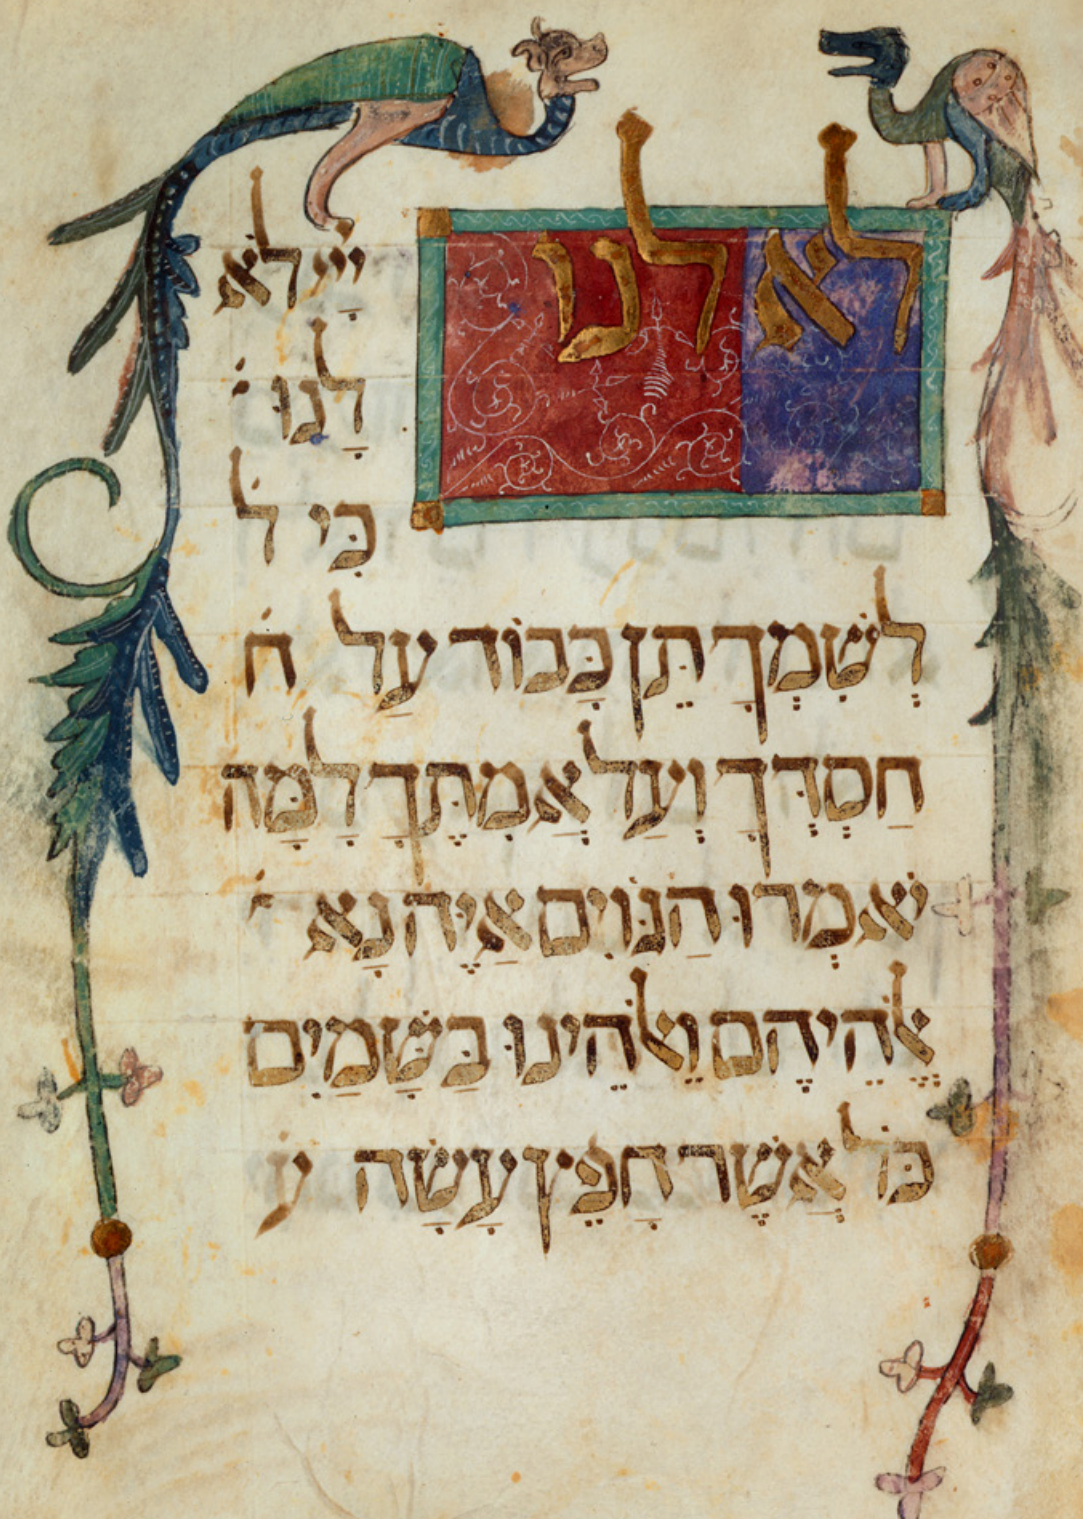 לא לנו
יְיָ לֹא
לָנוּ י
כִּי ל
לְשִׁמְךָ תֵּן כַּבוֹד עַל ח
חַסְדְּךָ וְעַל אֲמִתֶּךָ לָמָּה
יֹאמְרוּ הַגּוֹיִם אַיֵּה נָא י
אֱלֹהֵיהֶם וֵאלֹהֵינוּ בַּשָּׁמַיִם
כֹּל אֲשֶׁר חָפֵץ עָשָׂה ע